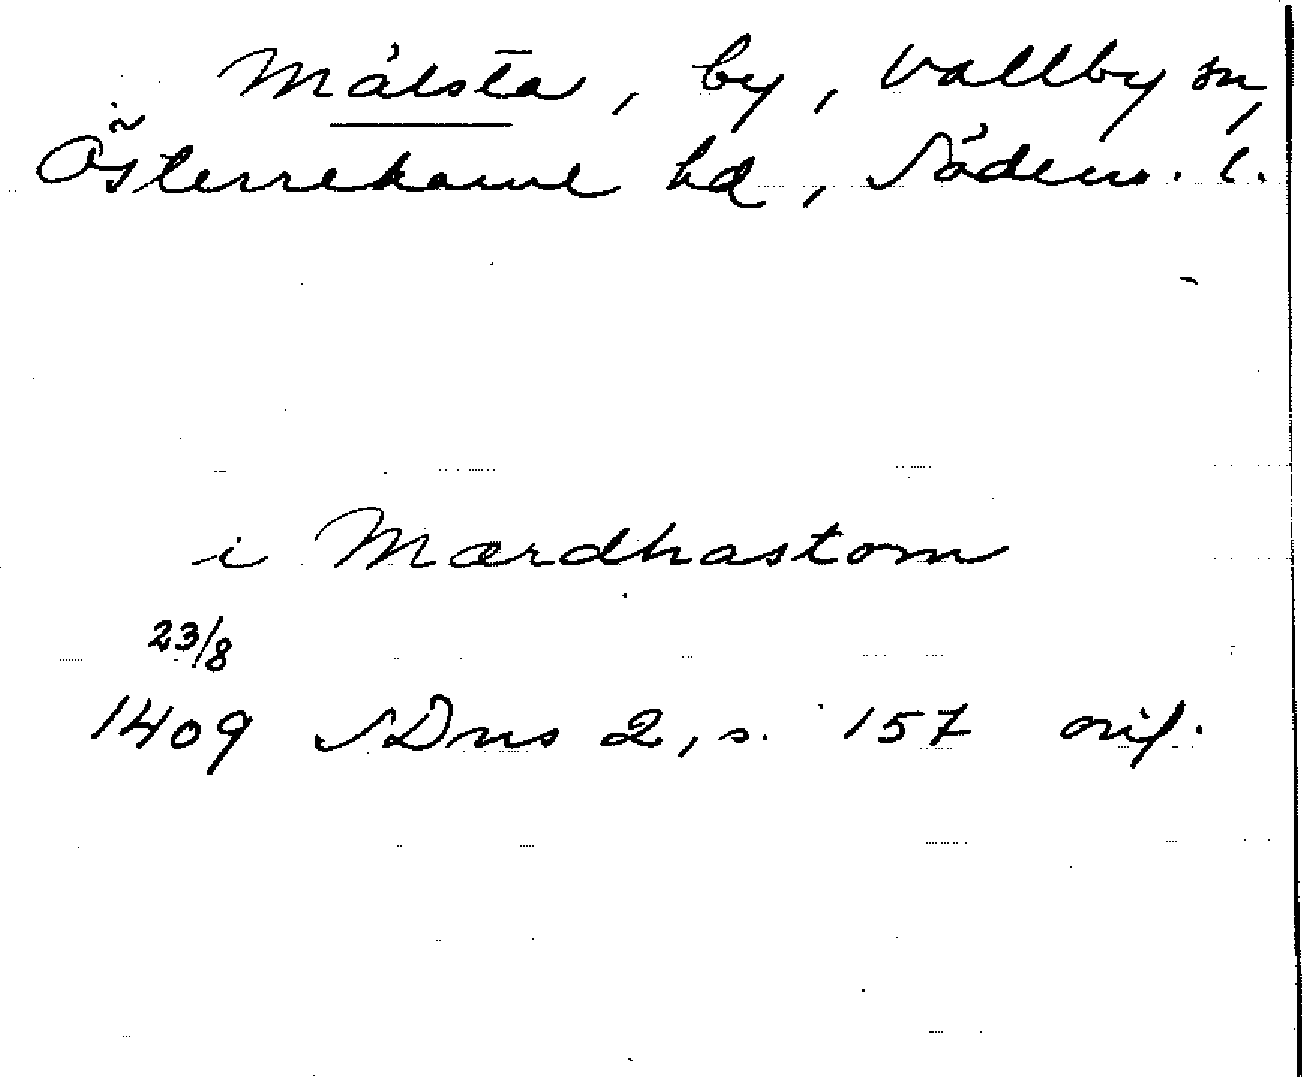 Målsta, by, Vallby sn,
Österrekarne hd, Söderm. l.
i Mærdhastom
23/8
1409 SDns 2, s. 157 orig.